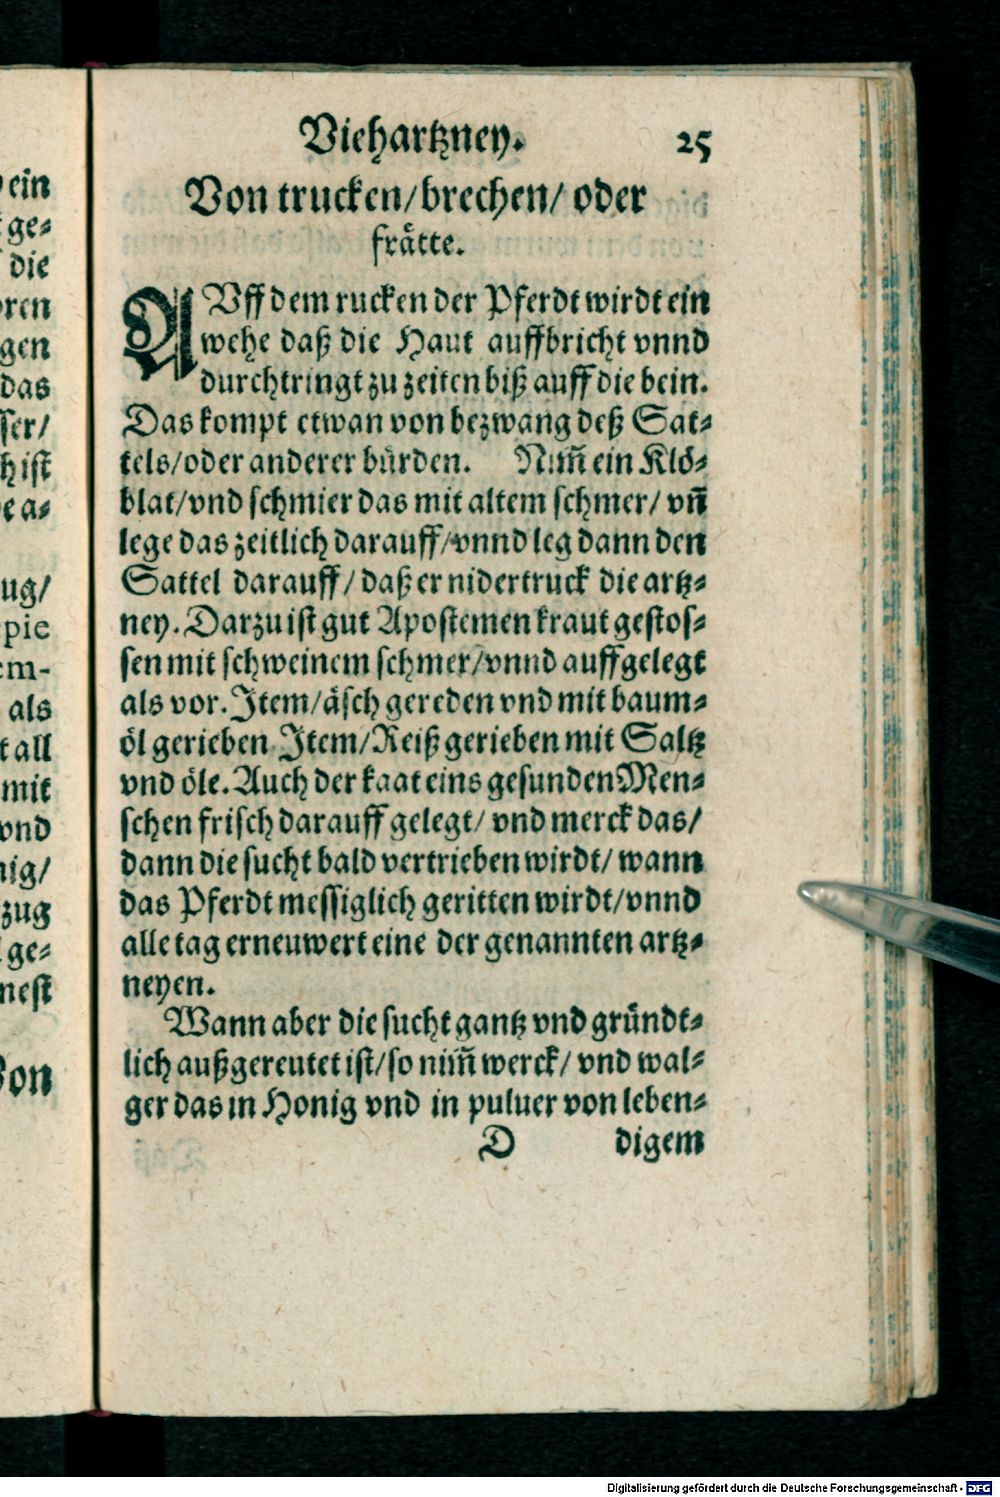 ein
ge⸗
die
oren
gen
das
ser/
h ist
e a⸗
ug/
pie
em-
als
t all
mit
vnd
nig/
zug
ge⸗
nest
Von
Viehartzney. 25
Von trucken/brechen/ oder
frätte.
AVff dem rucken der Pferdt wirdt ein
wehe daß die Haut auffbricht vnnd
durchtringt zu zeiten biß auff die bein.
Das kompt etwan von bezwang deß Sat⸗
tels/oder anderer bürden. Nim̃ ein Klö⸗
blat/vnd schmier das mit altem schmer/ vñ
lege das zeitlich darauff/vnnd leg dann den
Sattel darauff/ daß er nidertruck die artz⸗
ney. Darzu ist gut Apostemen kraut gestos⸗
sen mit schweinem schmer/vnnd auffgelegt
als vor. Item/äsch gereden vnd mit baum⸗
öl gerieben Item/Reiß gerieben mit Saltz
vnd öle. Auch der kaat eins gesunden Men⸗
schen frisch darauff gelegt/ vnd merck das/
dann die sucht bald vertrieben wirdt/ wann
das Pferdt messiglich geritten wirdt/vnnd
alle tag erneuwert eine der genannten artz⸗
neyen.
Wann aber die sucht gantz vnd gründt⸗
lich außgereutet ist/so nim̃ werck/ vnd wal⸗
ger das in Honig vnd in puluer von leben⸗
D digem
Digitalisierung gefördert durch die Deutsche Forschungsgemeinschaft - DFG